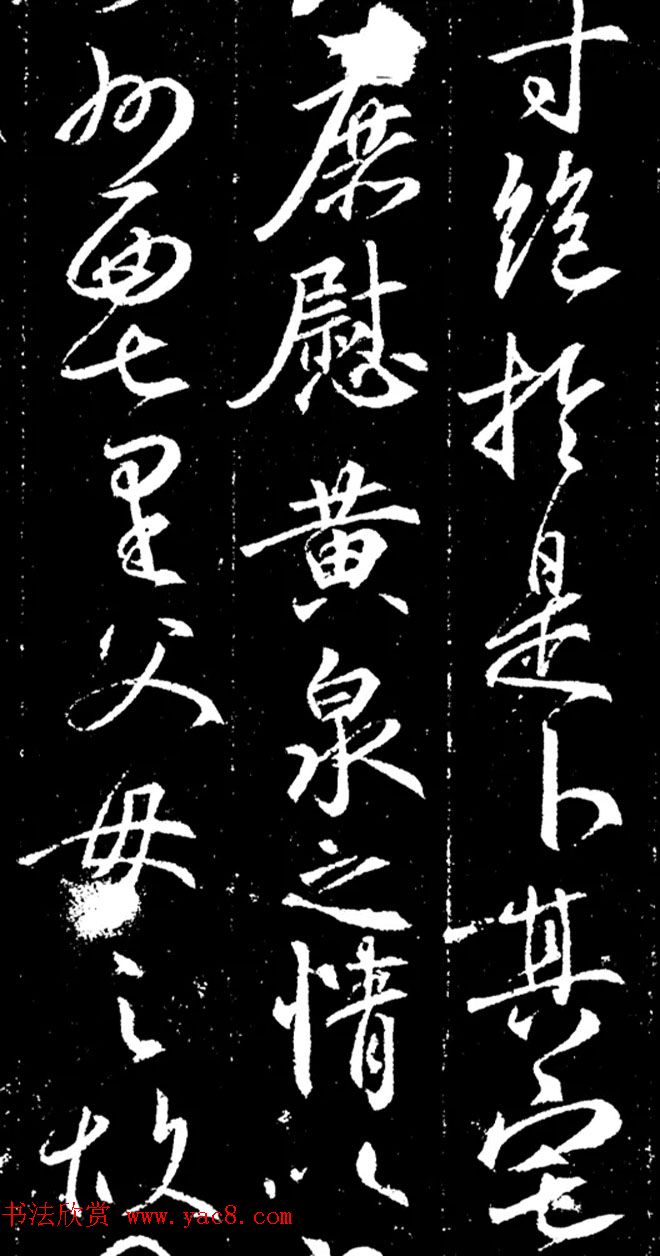 寸絶於是卜其宅
庶慰黄泉之情以
州西七里父母之
书法欣赏 www.yac8.com